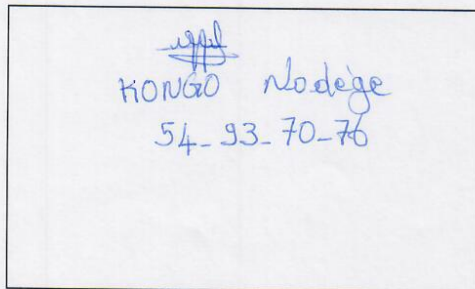 KONGO Nadège
54-93-70-76